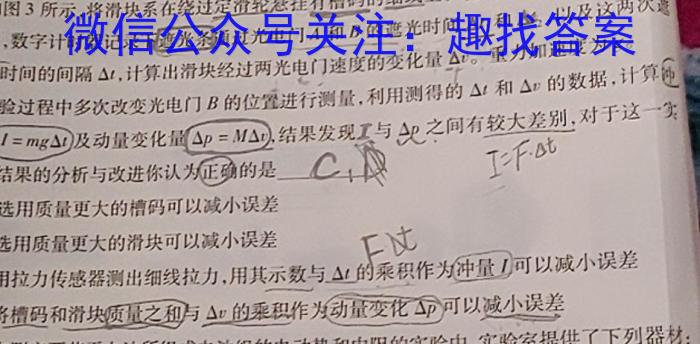 图3所示,将滑块系在绕过定滑轮悬挂有槽码的细线
微信公众号关注:趣找答案
,数字计时器记录遮光条通过光电门A和B的遮光时间 以及这两次遮
时间的间隔Δt,计算出滑块经过两光电门速度的变化量Δv。重力加速度为
验过程中多次改变光电门B的位置进行测量,利用测得的Δt和Δv的数据,计算冲
I=mgΔt及动量变化量Δp=MΔv,结果发现I与Δp之间有较大差别,对于这一实
I=F·Δt
结果的分析与改进你认为正确的是 C,D
选用质量更大的槽码可以减小误差
选用质量更大的滑块可以减小误差
FΔt
用拉力传感器测出细线拉力,用其示数与Δt的乘积作为冲量I可以减小误差
将槽码和滑块质量之和与Δv的乘积作为动量变化Δp可以减小误差
的实验中,实验室提供了下列器材: